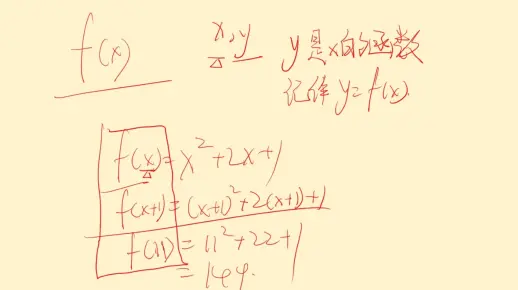 f(x)
x,y
y是x的函数
记作 y=f(x).
f(x)=x²+2x+1
f(x+1)=(x+1)²+2(x+1)+1
f(11)=11²+22+1
=144.